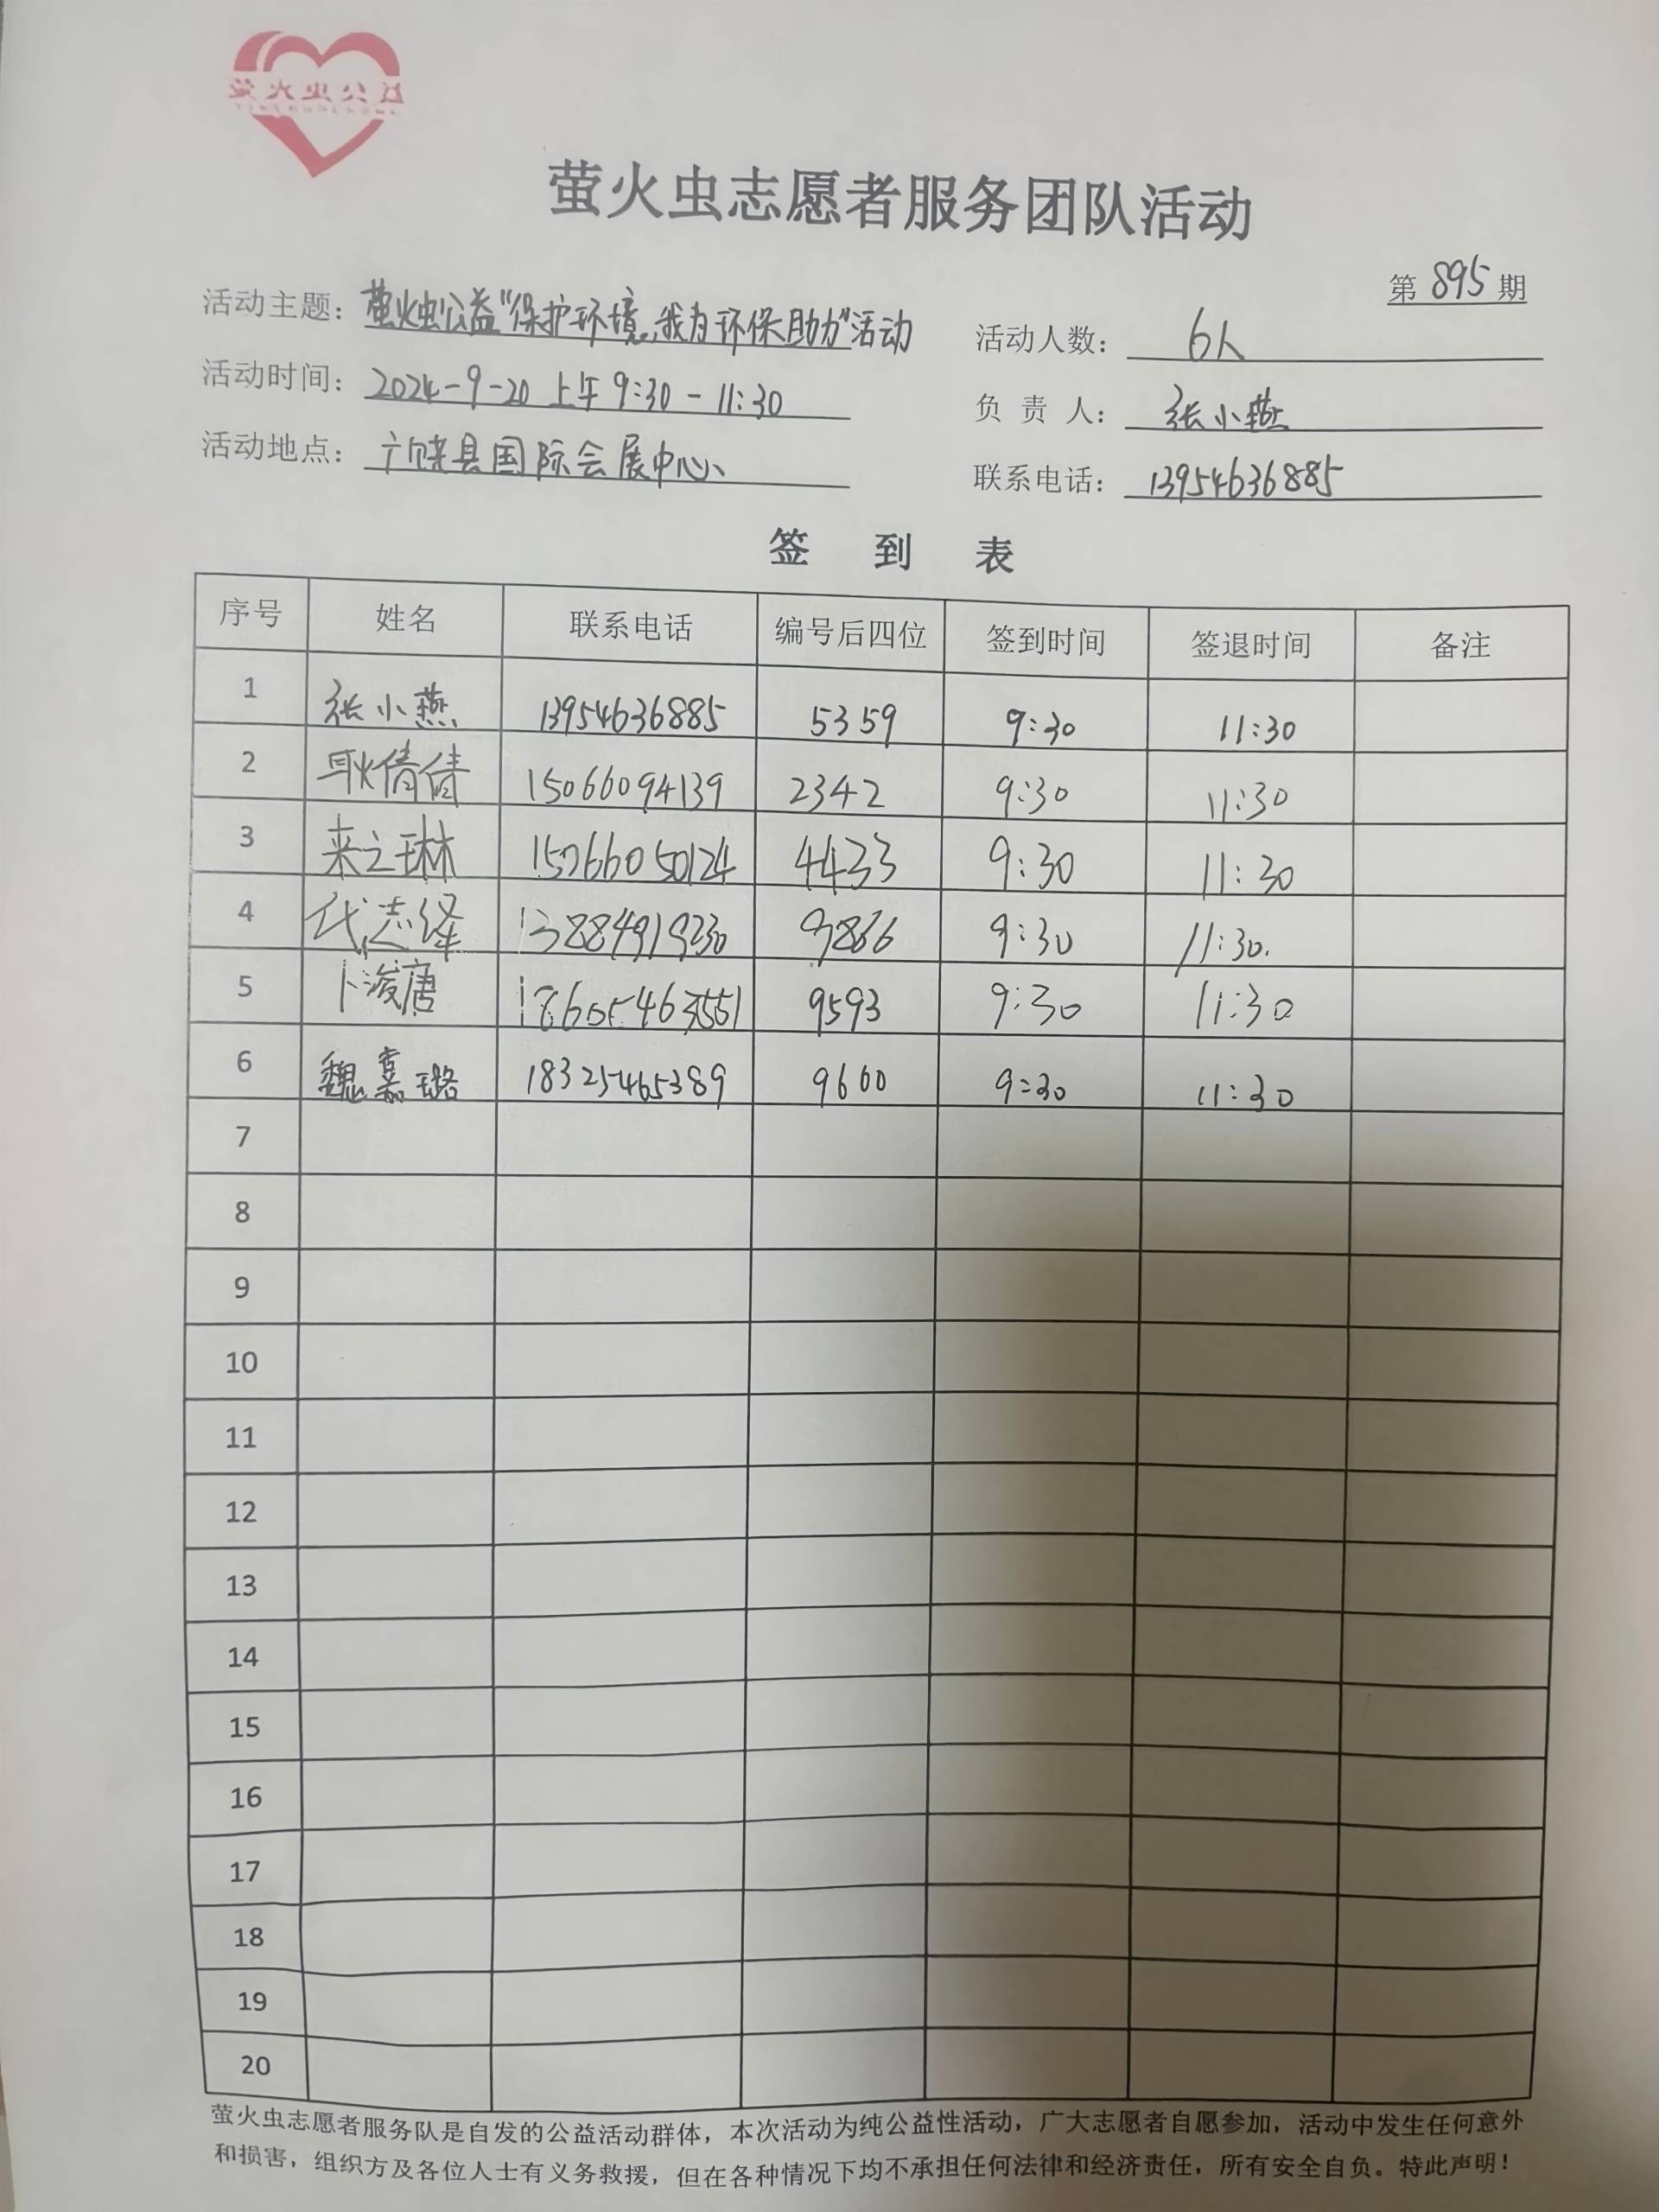 萤火虫公益
萤火虫志愿者服务团队活动
第895期
活动主题：萤火虫公益“保护环境，我为环保助力”活动
活动人数：6人
活动时间：2024-9-20 上午9:30-11:30
负责人：张小燕
活动地点：广饶县国际会展中心
联系电话：13954636885
签到表
序号 姓名 联系电话 编号后四位 签到时间 签退时间 备注
1 张小燕 13954636885 5359 9:30 11:30
2 耿倩倩 15066094139 2342 9:30 11:30
3 来之琳 15066050124 4433 9:30 11:30
4 代志绎 13884919230 9866 9:30 11:30.
5 卜浚唐 9593 9:30 11:30
6 魏嘉璐 18325465389 9660 9:30 11:30
7
8
9
10
11
12
13
14
15
16
17
18
19
20
萤火虫志愿者服务队是自发的公益活动群体，本次活动为纯公益性活动，广大志愿者自愿参加，活动中发生任何意外
和损害，组织方及各位人士有义务救援，但在各种情况下均不承担任何法律和经济责任，所有安全自负。特此声明！